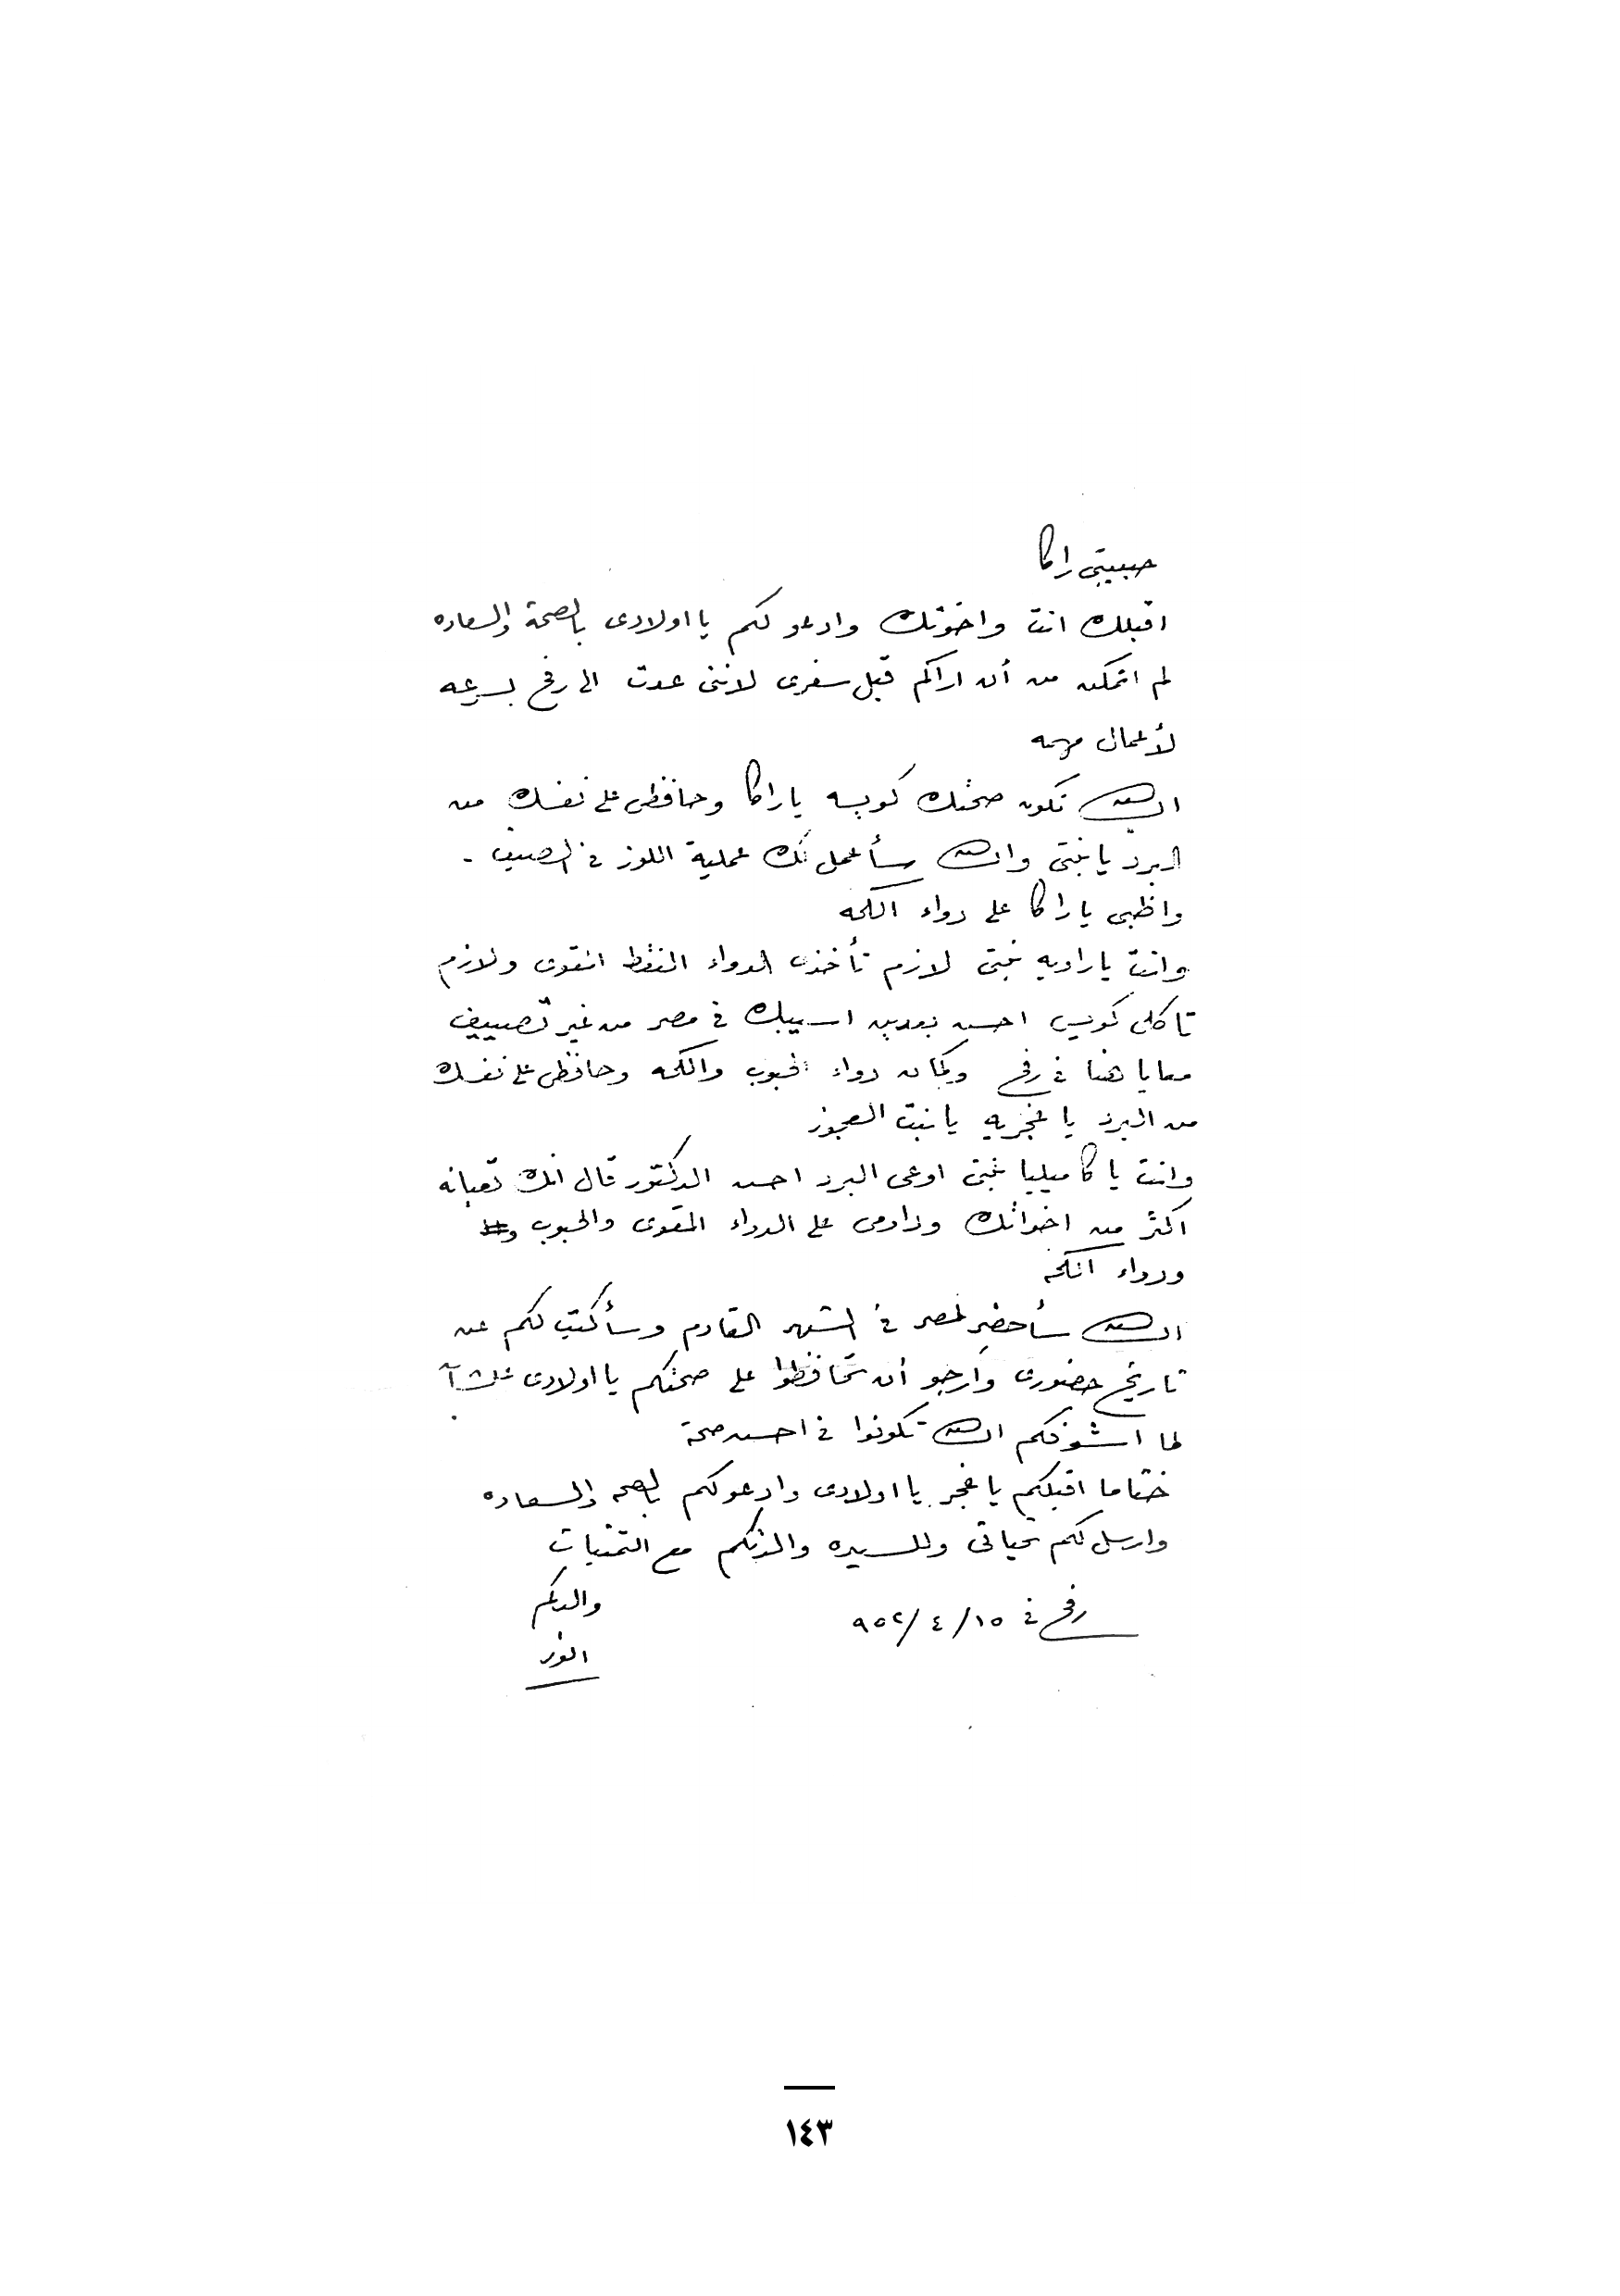 حبيبتى راكا
اقبلك انت واخوتك وادعو لكم يا اولادى بالصحة والسعاده
لم اتمكن من أن اراكم قبل سفرى لاننى عدت الى رفح بسرعه
لأعمال مهمه
ان شاء الله تكون صحتك كويسه يا راكا وحافظى على نفسك من
البرد يا بنتى وان شاء الله سأعمل لك عملية اللوز فى الصيف .
واظبى يا راكا على دواء الكحه
وانت يا راويه بنتى لازم تأخذى الدواء النقط المقوى ولازم
تاكلى كويس احسن بعدين اسيبك فى مصر من غير تصييف
معايا هنا فى رفح وكمان دواء الحبوب والكحه وحافظى على نفسك
من البرد يا غجريه يا بنت العجوز
وانت يا كاميليا بنتى اوعى البرد احسن الدكتور قال انك تعبانه
اكثر من اخواتك وداومى على الدواء المقوى والحبوب
ودواء الكحه
ان شاء الله سأحضر لمصر فى الشهر القادم وسأكتب لكم عن
تاريخ حضورى وأرجو أن تحافظوا على صحتكم يا اولادى علشان
لما اشوفكم ان شاء الله تكونوا فى احسن صحة
ختاما اقبلكم يا غجر يا اولادى وادعو لكم بالصحه والسعاده
وارسل لكم تحياتى وللسيده والدتكم مع التمنيات
والدكم
رفح فى ١٥/٤/٩٥٢
انور
١٤٣